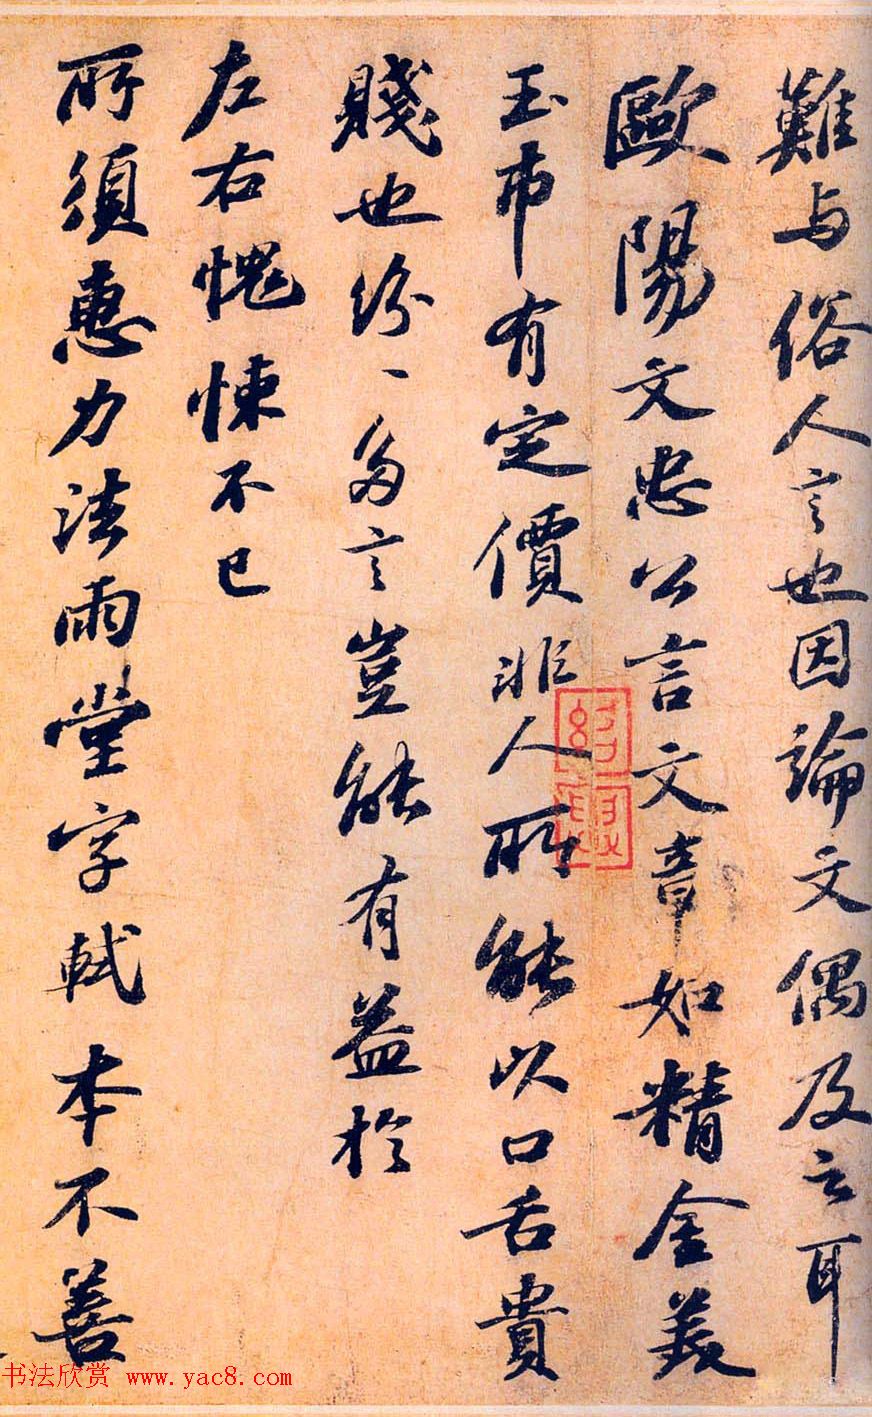 難与俗人言也因論文偶及之耳
歐陽文忠公言文章如精金美
玉市有定價非人所能以口舌貴
賤也紛〻多言豈能有益於
左右愧悚不已
所須惠力法雨堂字軾本不善
书法欣赏 www.yac8.com